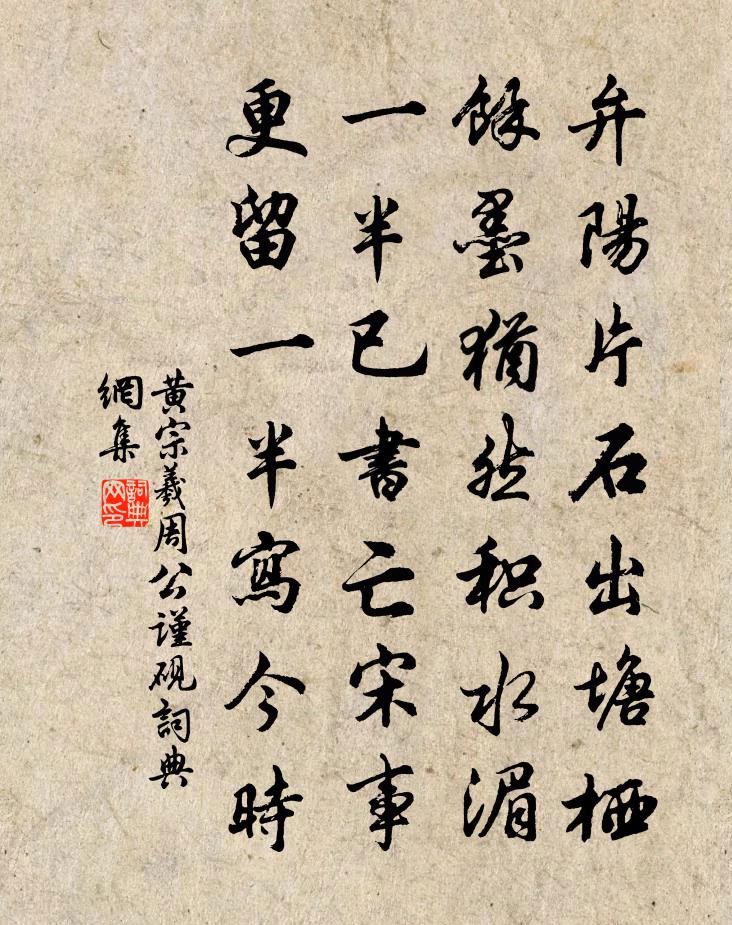 弁陽片石出塘栖
餘墨猶然积水湄
一半已書亡宋事
更留一半寫今時
黄宗羲周公謹砚詞典
網集
詞典
网印